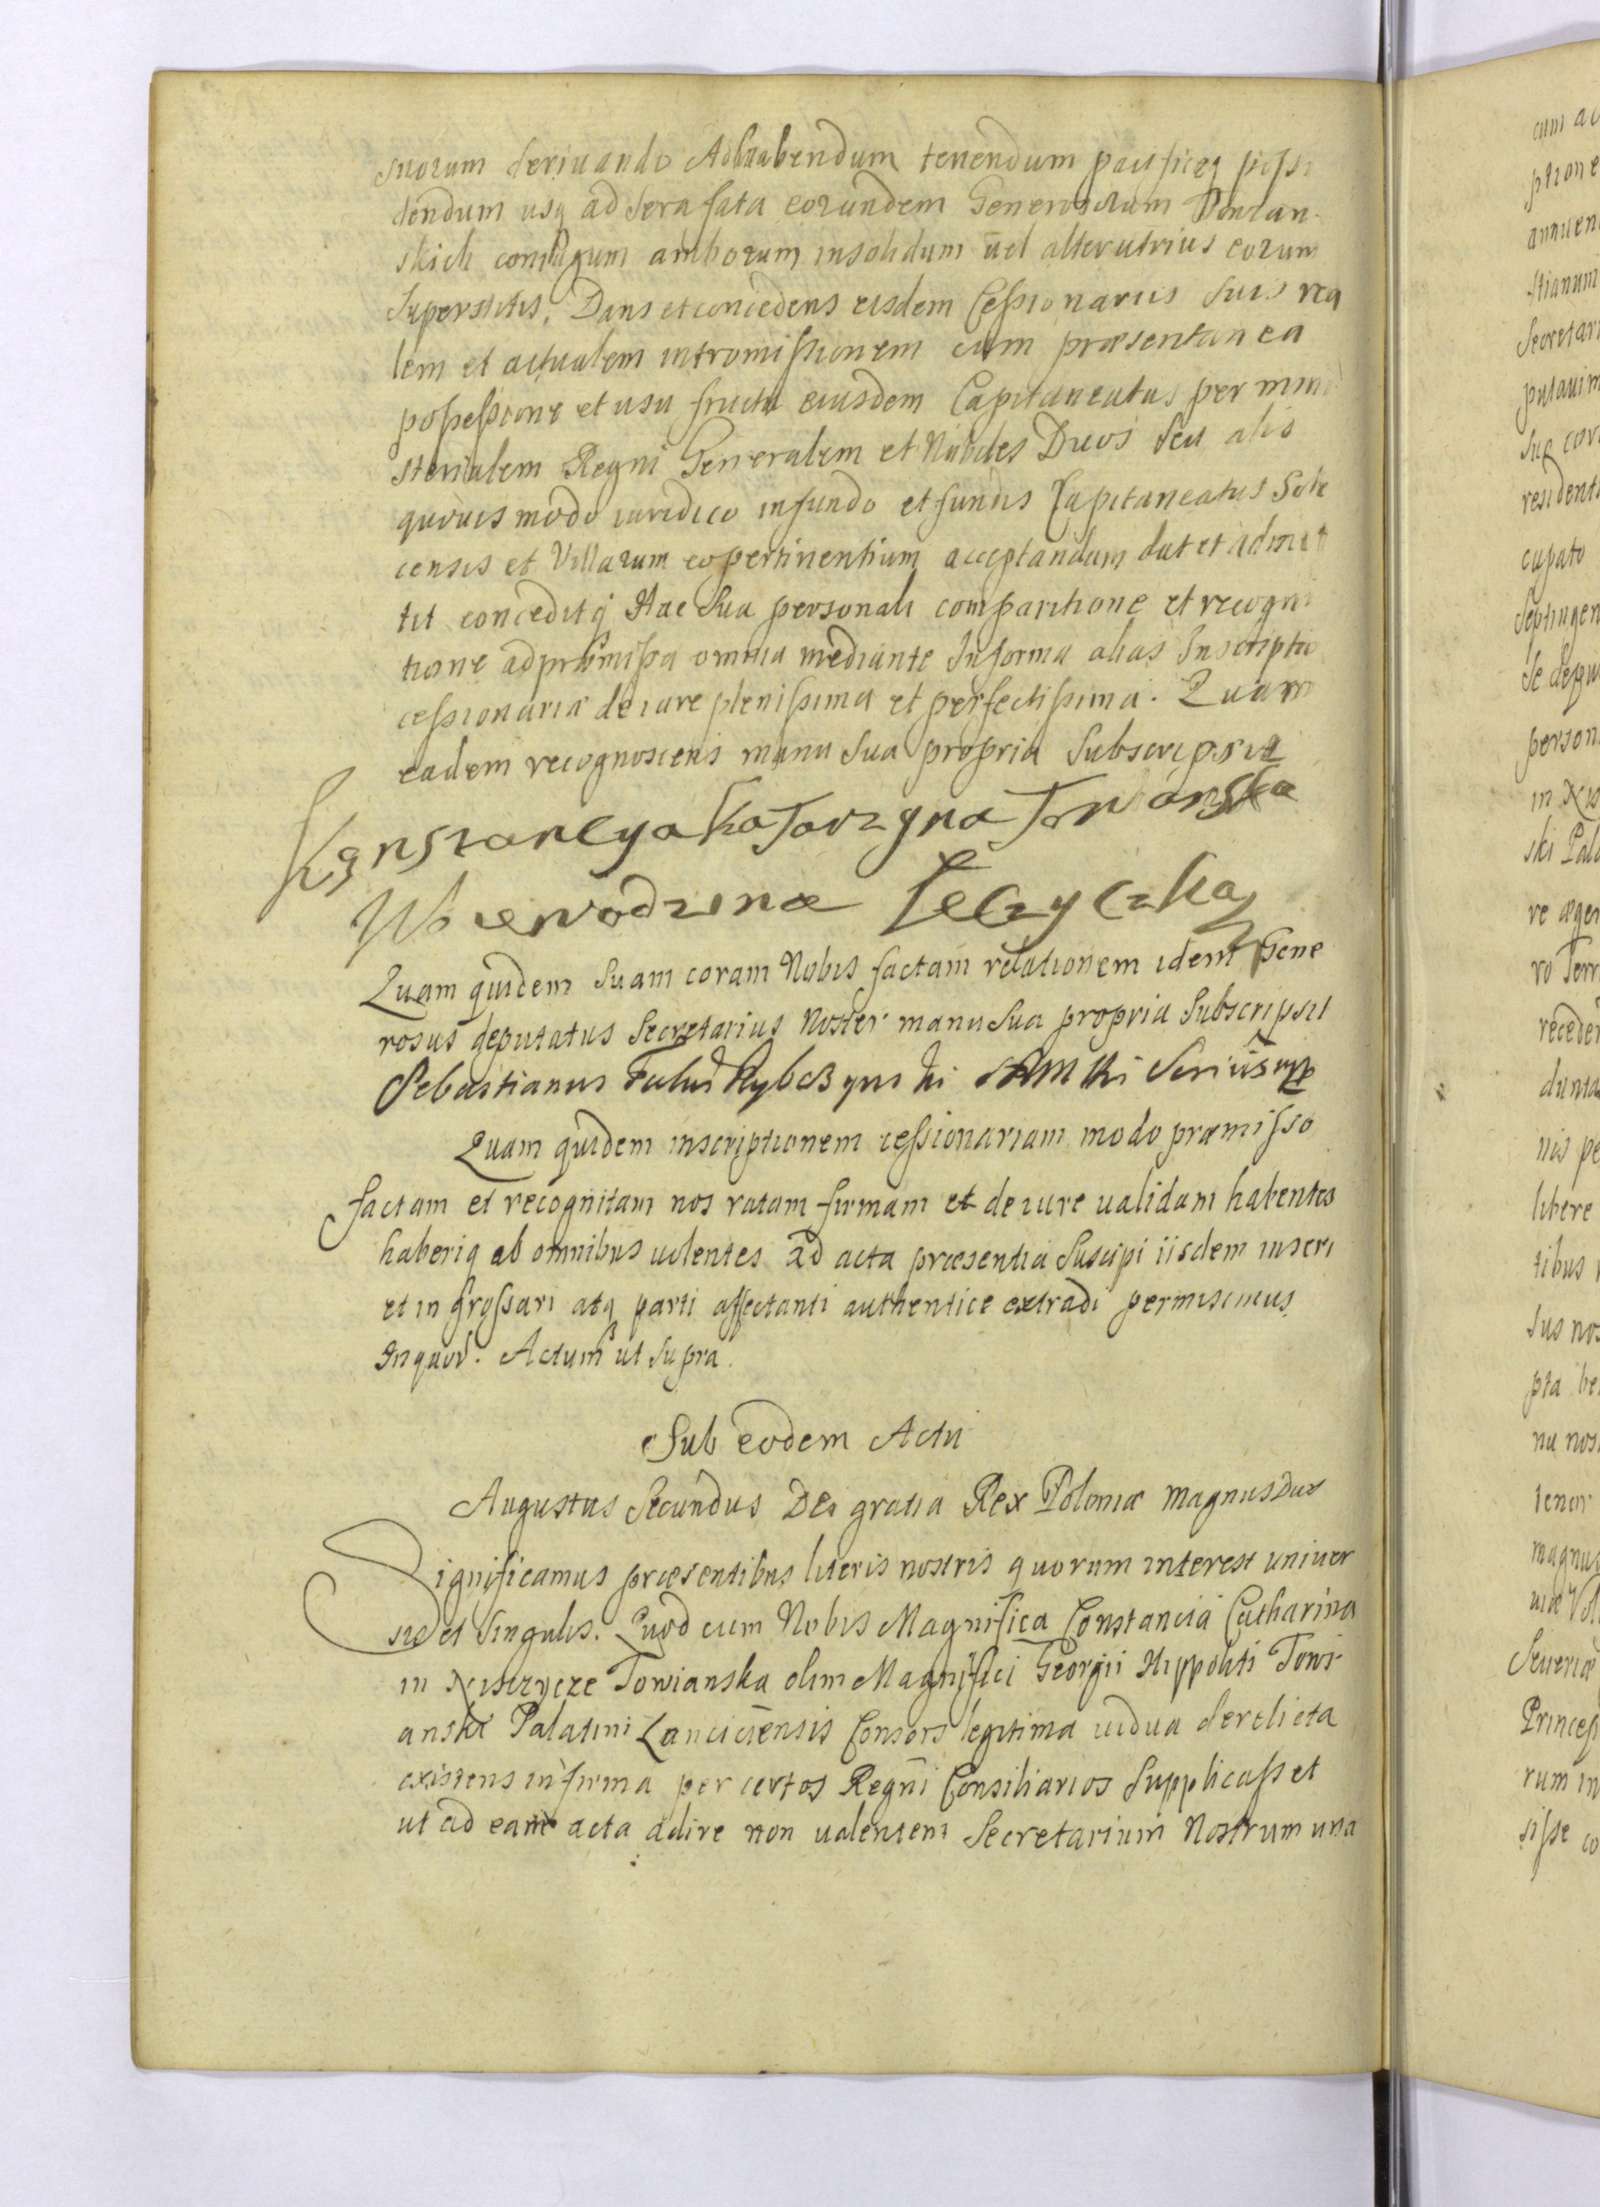 suorum derivando Adhabendum tenendum pacificeq possi
dendum usq ad sera fata eorundem Generosorum
skich coniugum amborum insolidum vel alterutrius eorum
superstitis. Dans et concedens eisdem Cessionariis suis rea
lem et actualem intromissionem cum præsentanea
possessione et usu fructu eiusdem Capitaneatus per mini
sterialem Regni Generalem et Nobiles Duos seu alio
quovis modo iuridico in fundo et fundis Capitaneatus
censis et Villarum eo pertinentium acceptandam dat et admit
tit conceditq Hac sua personali comparitione et recogni
tione ad præmissa omnia mediante In forma alias Inscriptio
cessionariæ de iure plenissima et perfectissima. Quam
eadem recognoscens manu sua propria subscripsit
Konstancya Katarzyna Towianska
Woiewodzina Łęczycka
Quam quidem suam coram Nobis factam relationem idem Gene
rosus deputatus Secretarius Noster manu sua propria subscripsit
Sebastianus Rybczynski
Quam quidem inscriptionem cessionariam modo præmisso
factam et recognitam nos ratam firmam et de iure validam habentes
haberiq ab omnibus volentes ad acta præsentia suscipi iisdem inseri
et in grossari atq parti affectanti authentice extradi permisimus
In quor. Actum ut supra.
Sub eodem Actu
Augustus Secundus Dei gratia Rex Poloniæ Magnus Dux
Significamus præsentibus literis nostris quorum interest univer
sis et singulis. Quod cum Nobis Magnifica Constancia Catharina
in Niszczyce Towianska olim Magnifici Georgii Hippoliti Towi-
anski Palatini Lanciciensis Consors legitima vidua derelicta
existens infirma per certos Regni Consiliarios supplicasset
ut ad eam acta adire non valentem Secretarium Nostrum una
cum
annuen
stianum
Secretari
putavim
resident
cupato
septingen
person
ski Pala
re æger
ro Terr
receder
dunta
libere
tibus
sus nos
pta
tenor
magnus
Severiæ
Princep
rum in
sisse co